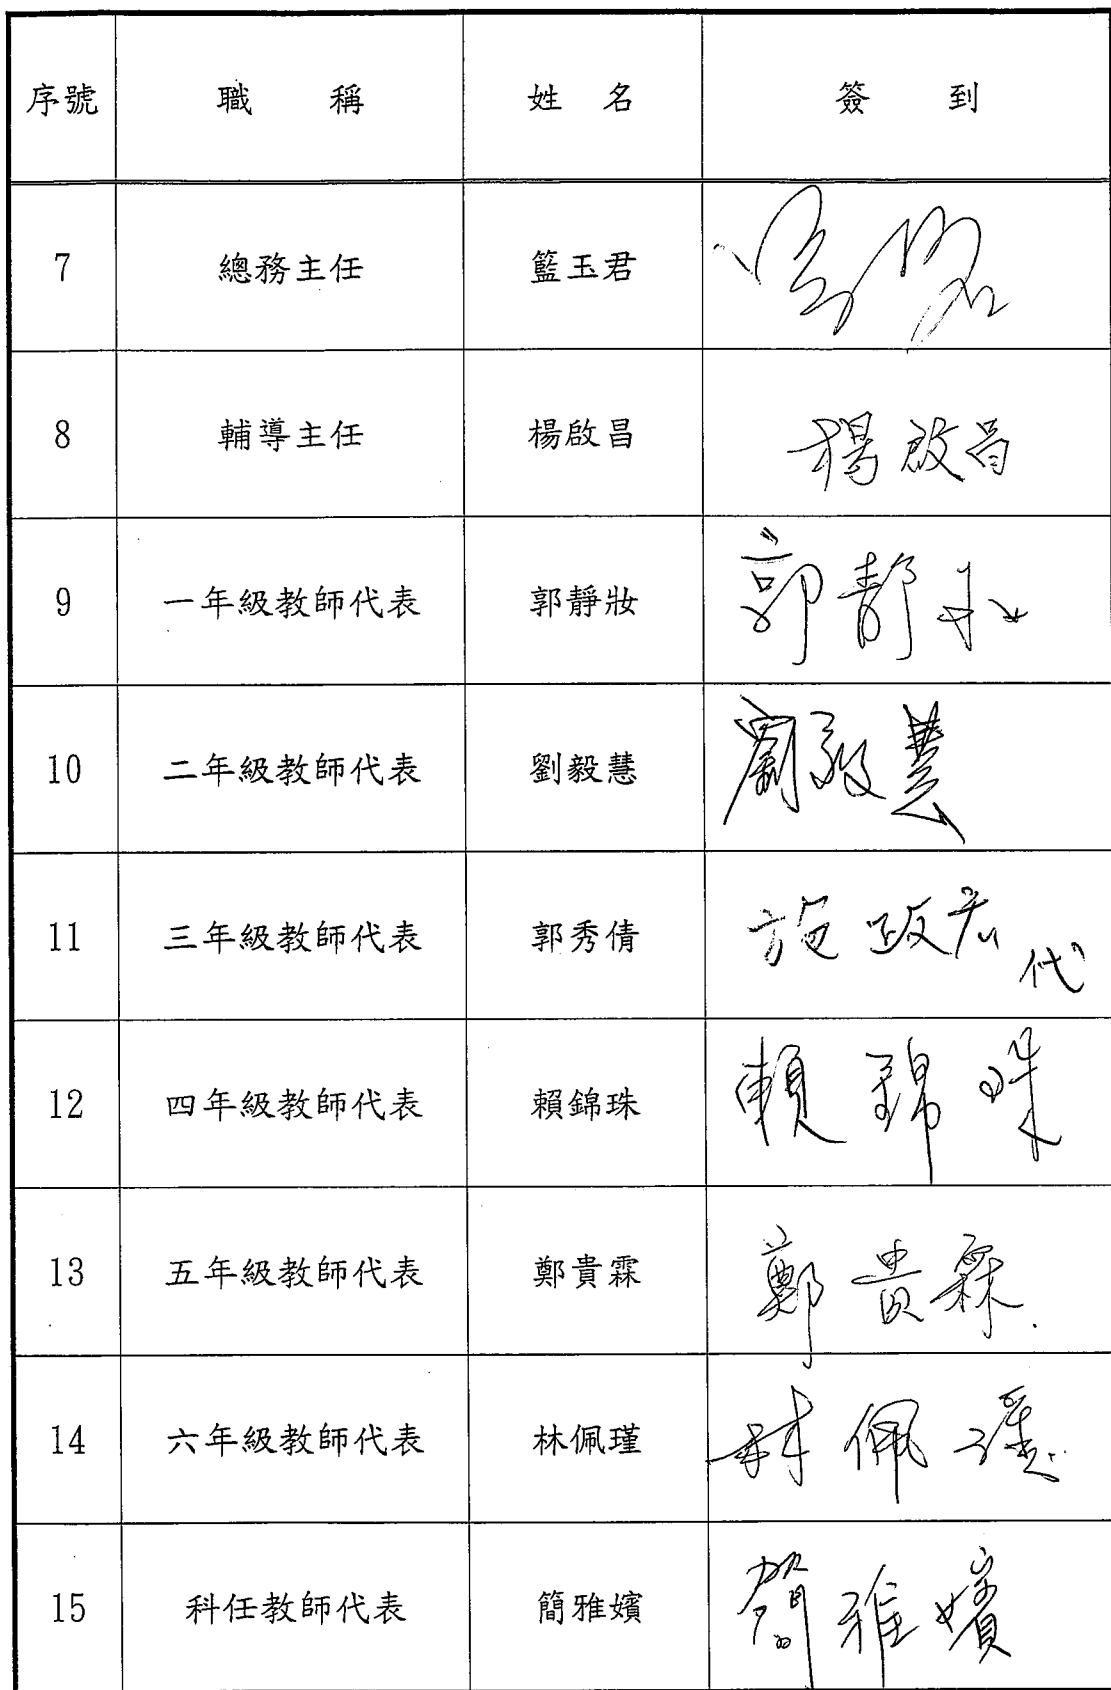 序號 職 稱 姓 名 簽 到
7 總務主任 籃玉君
8 輔導主任 楊啟昌 楊啟昌
9 一年級教師代表 郭靜妝 郭靜妝
10 二年級教師代表 劉毅慧 劉毅慧
11 三年級教師代表 郭秀倩 施政宏代
12 四年級教師代表 賴錦珠 賴錦珠
13 五年級教師代表 鄭貴霖 鄭貴霖
14 六年級教師代表 林佩瑾 林佩瑾
15 科任教師代表 簡雅嬪 簡雅嬪